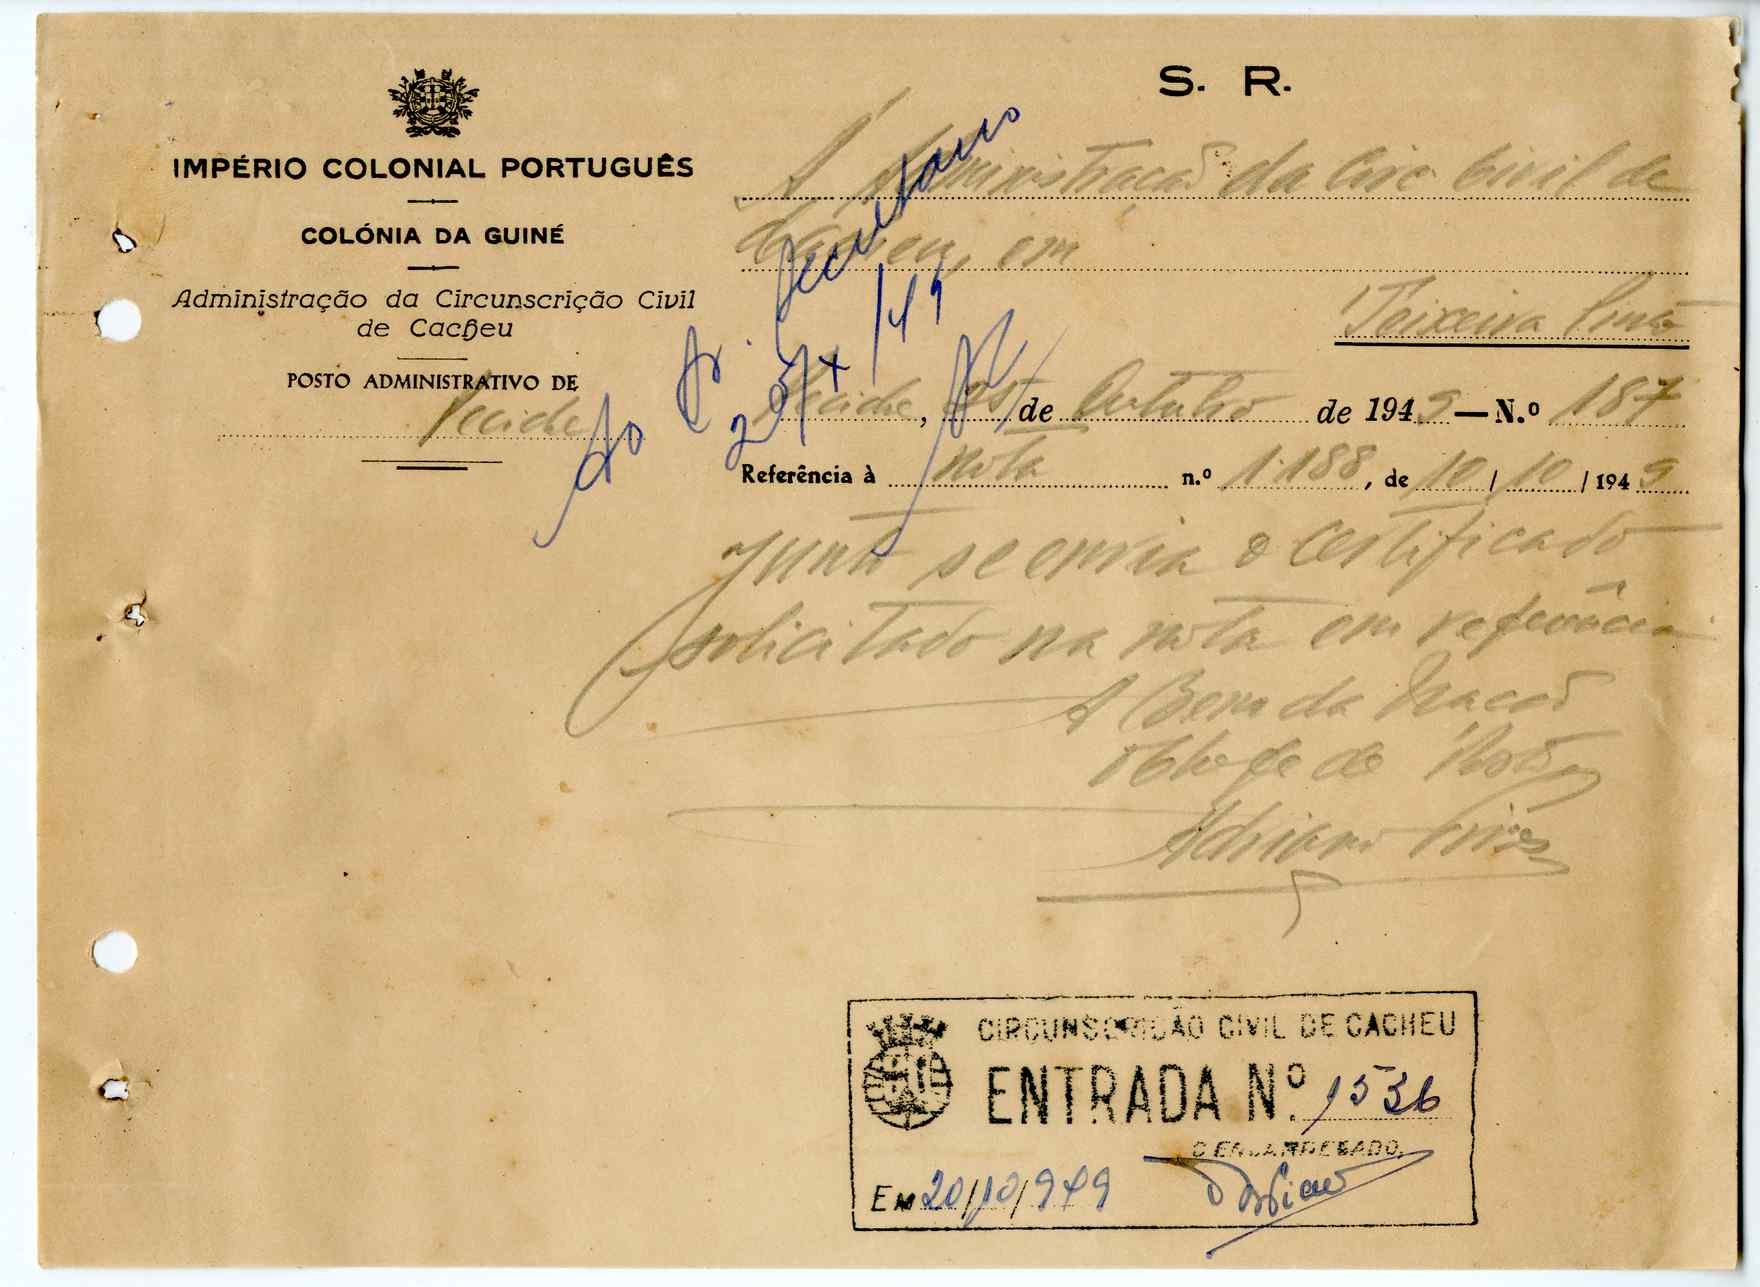 S. R.
IMPÉRIO COLONIAL PORTUGUÊS
COLÓNIA DA GUINÉ
Administração da Circunscrição Civil
de Cacheu
POSTO ADMINISTRATIVO DE
Pecixe
À Administração da Circ. Civil de
Cacheu, em
Teixeira Pinto
Pecixe, de Outubro de 1949 — N.º 187
Referência à nota n.º 1.188, de 10/10/1949
Junto se envia o certificado
solicitado na nota em referência
A Bem da Nação
O Chefe de Posto,
Adriano Pires
Ao Sr. Secretario
20/X/49
CIRCUNSCRIÇÃO CIVIL DE CACHEU
ENTRADA N.º 1536
O ENCARREGADO,
EM 20/10/949